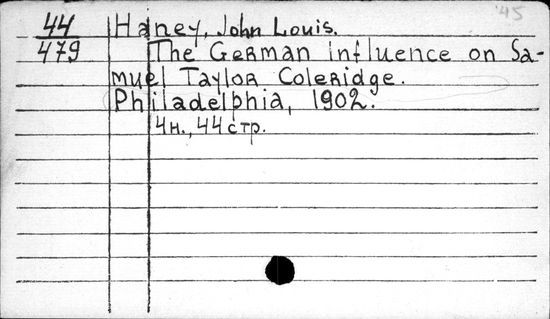 '45
44
479
Haney, John Louis.
The German influence on Sa-
muel Taylor Coleridge.
Philadelphia, 1902.
4н., 44 стр.